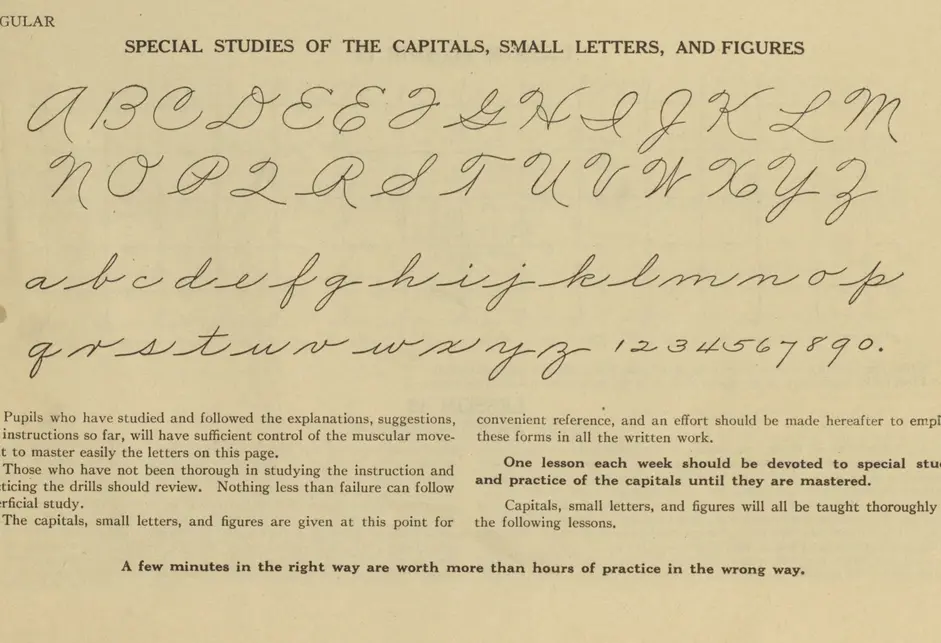 GULAR
SPECIAL STUDIES OF THE CAPITALS, SMALL LETTERS, AND FIGURES
A B C D E E F G H I J K L M
N O P Q R S T U V W X Y Z
a b c d e f g h i j k l m n o p
q r s t u v w x y z 1 2 3 4 5 6 7 8 9 0.
Pupils who have studied and followed the explanations, suggestions,
instructions so far, will have sufficient control of the muscular move-
t to master easily the letters on this page.
Those who have not been thorough in studying the instruction and
ticing the drills should review. Nothing less than failure can follow
rficial study.
The capitals, small letters, and figures are given at this point for
convenient reference, and an effort should be made hereafter to empl
these forms in all the written work.
One lesson each week should be devoted to special stu
and practice of the capitals until they are mastered.
Capitals, small letters, and figures will all be taught thoroughly
the following lessons.
A few minutes in the right way are worth more than hours of practice in the wrong way.